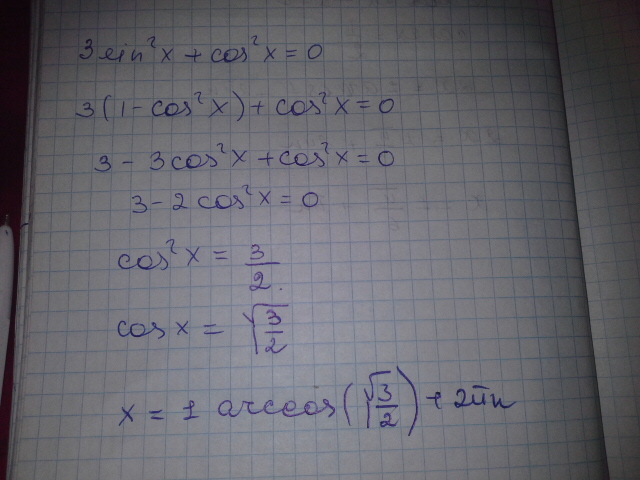 3 sin²x + cos²x = 0
3(1 - cos²x) + cos²x = 0
3 - 3cos²x + cos²x = 0
3 - 2cos²x = 0
cos²x = 3/2.
cos x = √(3/2)
x = 1 arccos(√(3/2)) + 2πn